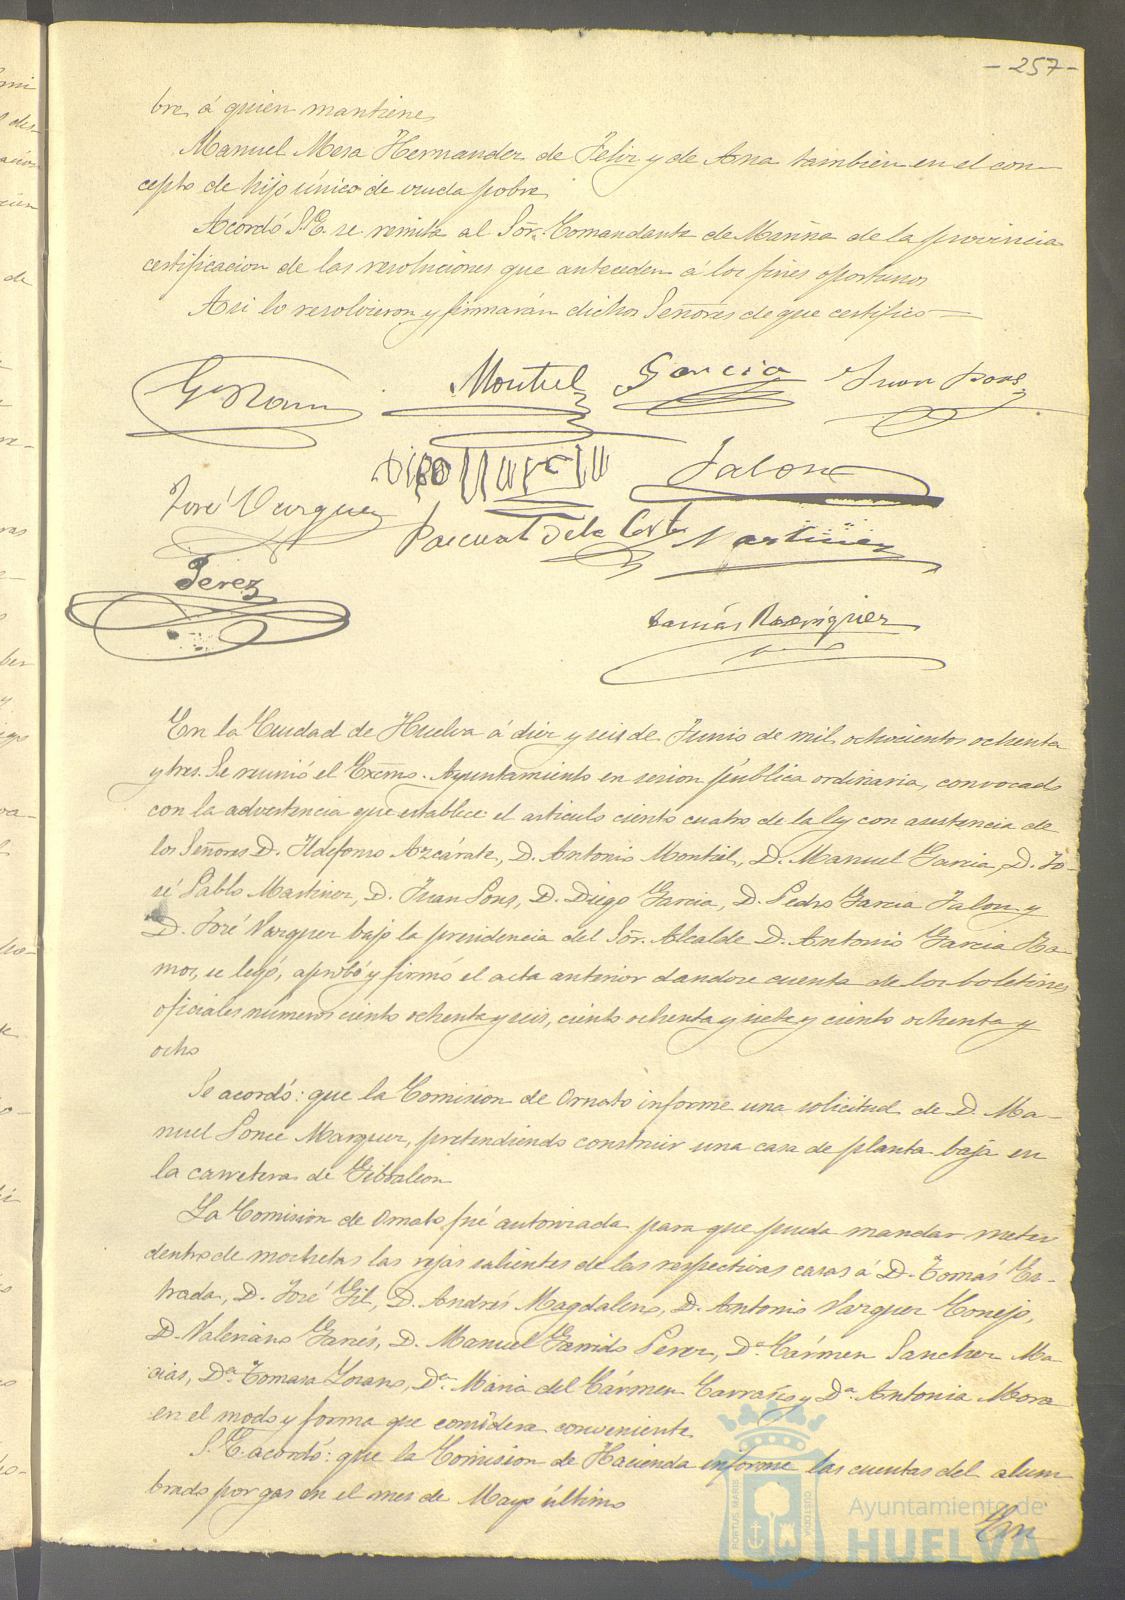 - 257 -
bre, á quien mantiene
Manuel Mesa Hernandez de Felix y de Ana tambien en el con-
cepto de hijo único de viuda pobre
Acordó S.E. se remita al Sõr. Comandante de Marina de la provincia
certificacion de las resoluciones que anteceden á los fines oportunos
Asi lo resolvieron y firmarán dichos Señores de que certifico =
Montiel García Juan Pons
Jalon
José Vazquez Pascual de la Corte Martinez
Perez
Tomás Rodriguez
En la Ciudad de Huelva á diez y seis de Junio de mil ochocientos ochenta
y tres. Se reunió el Excmo. Ayuntamiento en sesion pública ordinaria, convocado
con la advertencia que establece el articulo ciento cuatro de la ley con asistencia de
los Señores D. Ildefonso Azcárate, D. Antonio Montiel, D. Manuel Garcia, D. Jo-
sé Pablo Martinez, D. Juan Pons, D. Diego Garcia, D. Pedro Garcia Jalon y
D. José Vazquez bajo la presidencia del Sõr. Alcalde D. Antonio Garcia Ra-
mos, se leyó, aprobó y firmó el acta anterior dandose cuenta de los boletines
oficiales números ciento ochenta y seis, ciento ochenta y siete y ciento ochenta y
ocho
Se acordó: que la Comision de Ornato informe una solicitud de D. Ma-
nuel Ponce Marquez, pretendiendo construir una casa de planta baja en
la carretera de Gibraleon
La Comision de Ornato fué autorizada para que pueda mandar meter
dentro de mochetas las rejas salientes de las respectivas casas á D. Tomás Es-
trada, D. José Gil, D. Andrés Magdaleno, D. Antonio Vazquez Conejo,
D. Valeriano Garcés, D. Manuel Garrido Perez, Dª. Cármen Sanchez Ma-
cias, Dª. Tomasa Lozano, Dª. Maria del Cármen Carraño y Dª. Antonia Mora
en el modo y forma que considera conveniente
S.E. acordó: que la Comision de Hacienda informe las cuentas del alum
brado por gas en el mes de Mayo último
En
PORTUS MARIS CUSTODIA
Ayuntamiento de
HUELVA